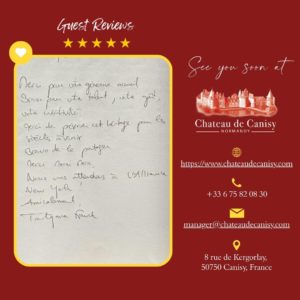 Guest Reviews
Merci pour votre généreux accueil
Bravo pour votre talent, votre goût,
votre
Merci de préserver cet héritage pour les
siècles à venir
Bravo de le partager
Merci
Nous vous attendons à
New York!
Amicalement
See you soon at
Chateau de Canisy
NORMANDY
https://www.chateaudecanisy.com
+33 6 75 82 08 30
manager@chateaudecanisy.com
8 rue de Kergorlay,
50750 Canisy, France